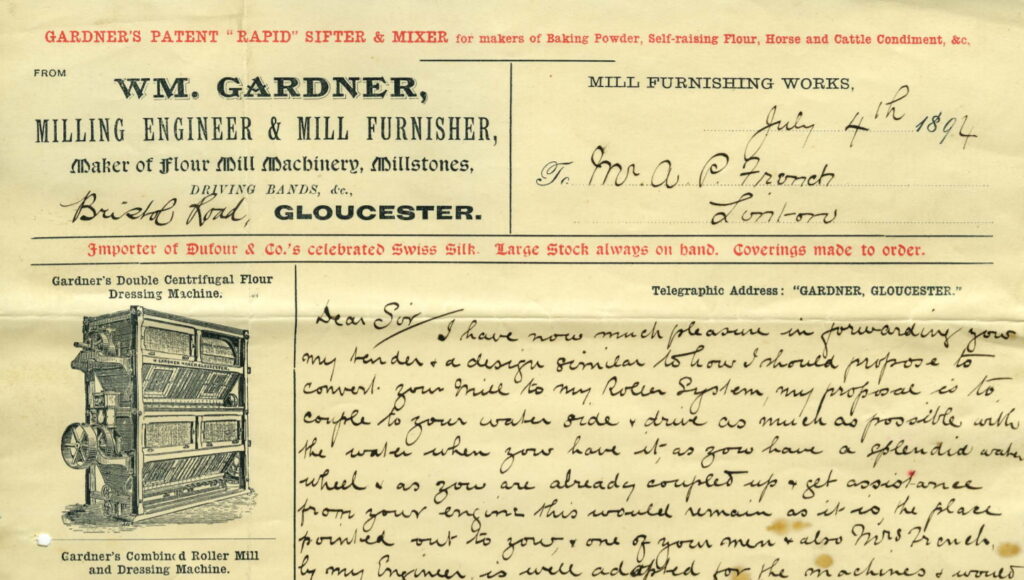 GARDNER'S PATENT "RAPID" SIFTER & MIXER for makers of Baking Powder, Self-raising Flour, Horse and Cattle Condiment, &c.
FROM
WM. GARDNER,
MILLING ENGINEER & MILL FURNISHER,
Maker of Flour Mill Machinery, Millstones,
DRIVING BANDS, &c.,
Bristol Road, GLOUCESTER.
MILL FURNISHING WORKS,
July 4th 1894
To Mr. A. P. French
Linton
Importer of Dufour & Co.'s celebrated Swiss Silk. Large Stock always on hand. Coverings made to order.
Gardner's Double Centrifugal Flour
Dressing Machine.
Gardner's Combined Roller Mill
and Dressing Machine.
Telegraphic Address: "GARDNER, GLOUCESTER."
Dear Sir/ I have now much pleasure in forwarding your
my tender & a design similar to how I should propose to
convert your Mill to my Roller System, my proposal is to
couple to your water side & drive as much as possible with
the water when you have it, as you have a splendid water
wheel & as you are already coupled up & get assistance
from your engine this would remain as it is the place
pointed out to you, & one of your men & also Mrs French,
by my Engineer, is well adapted for the machines & would